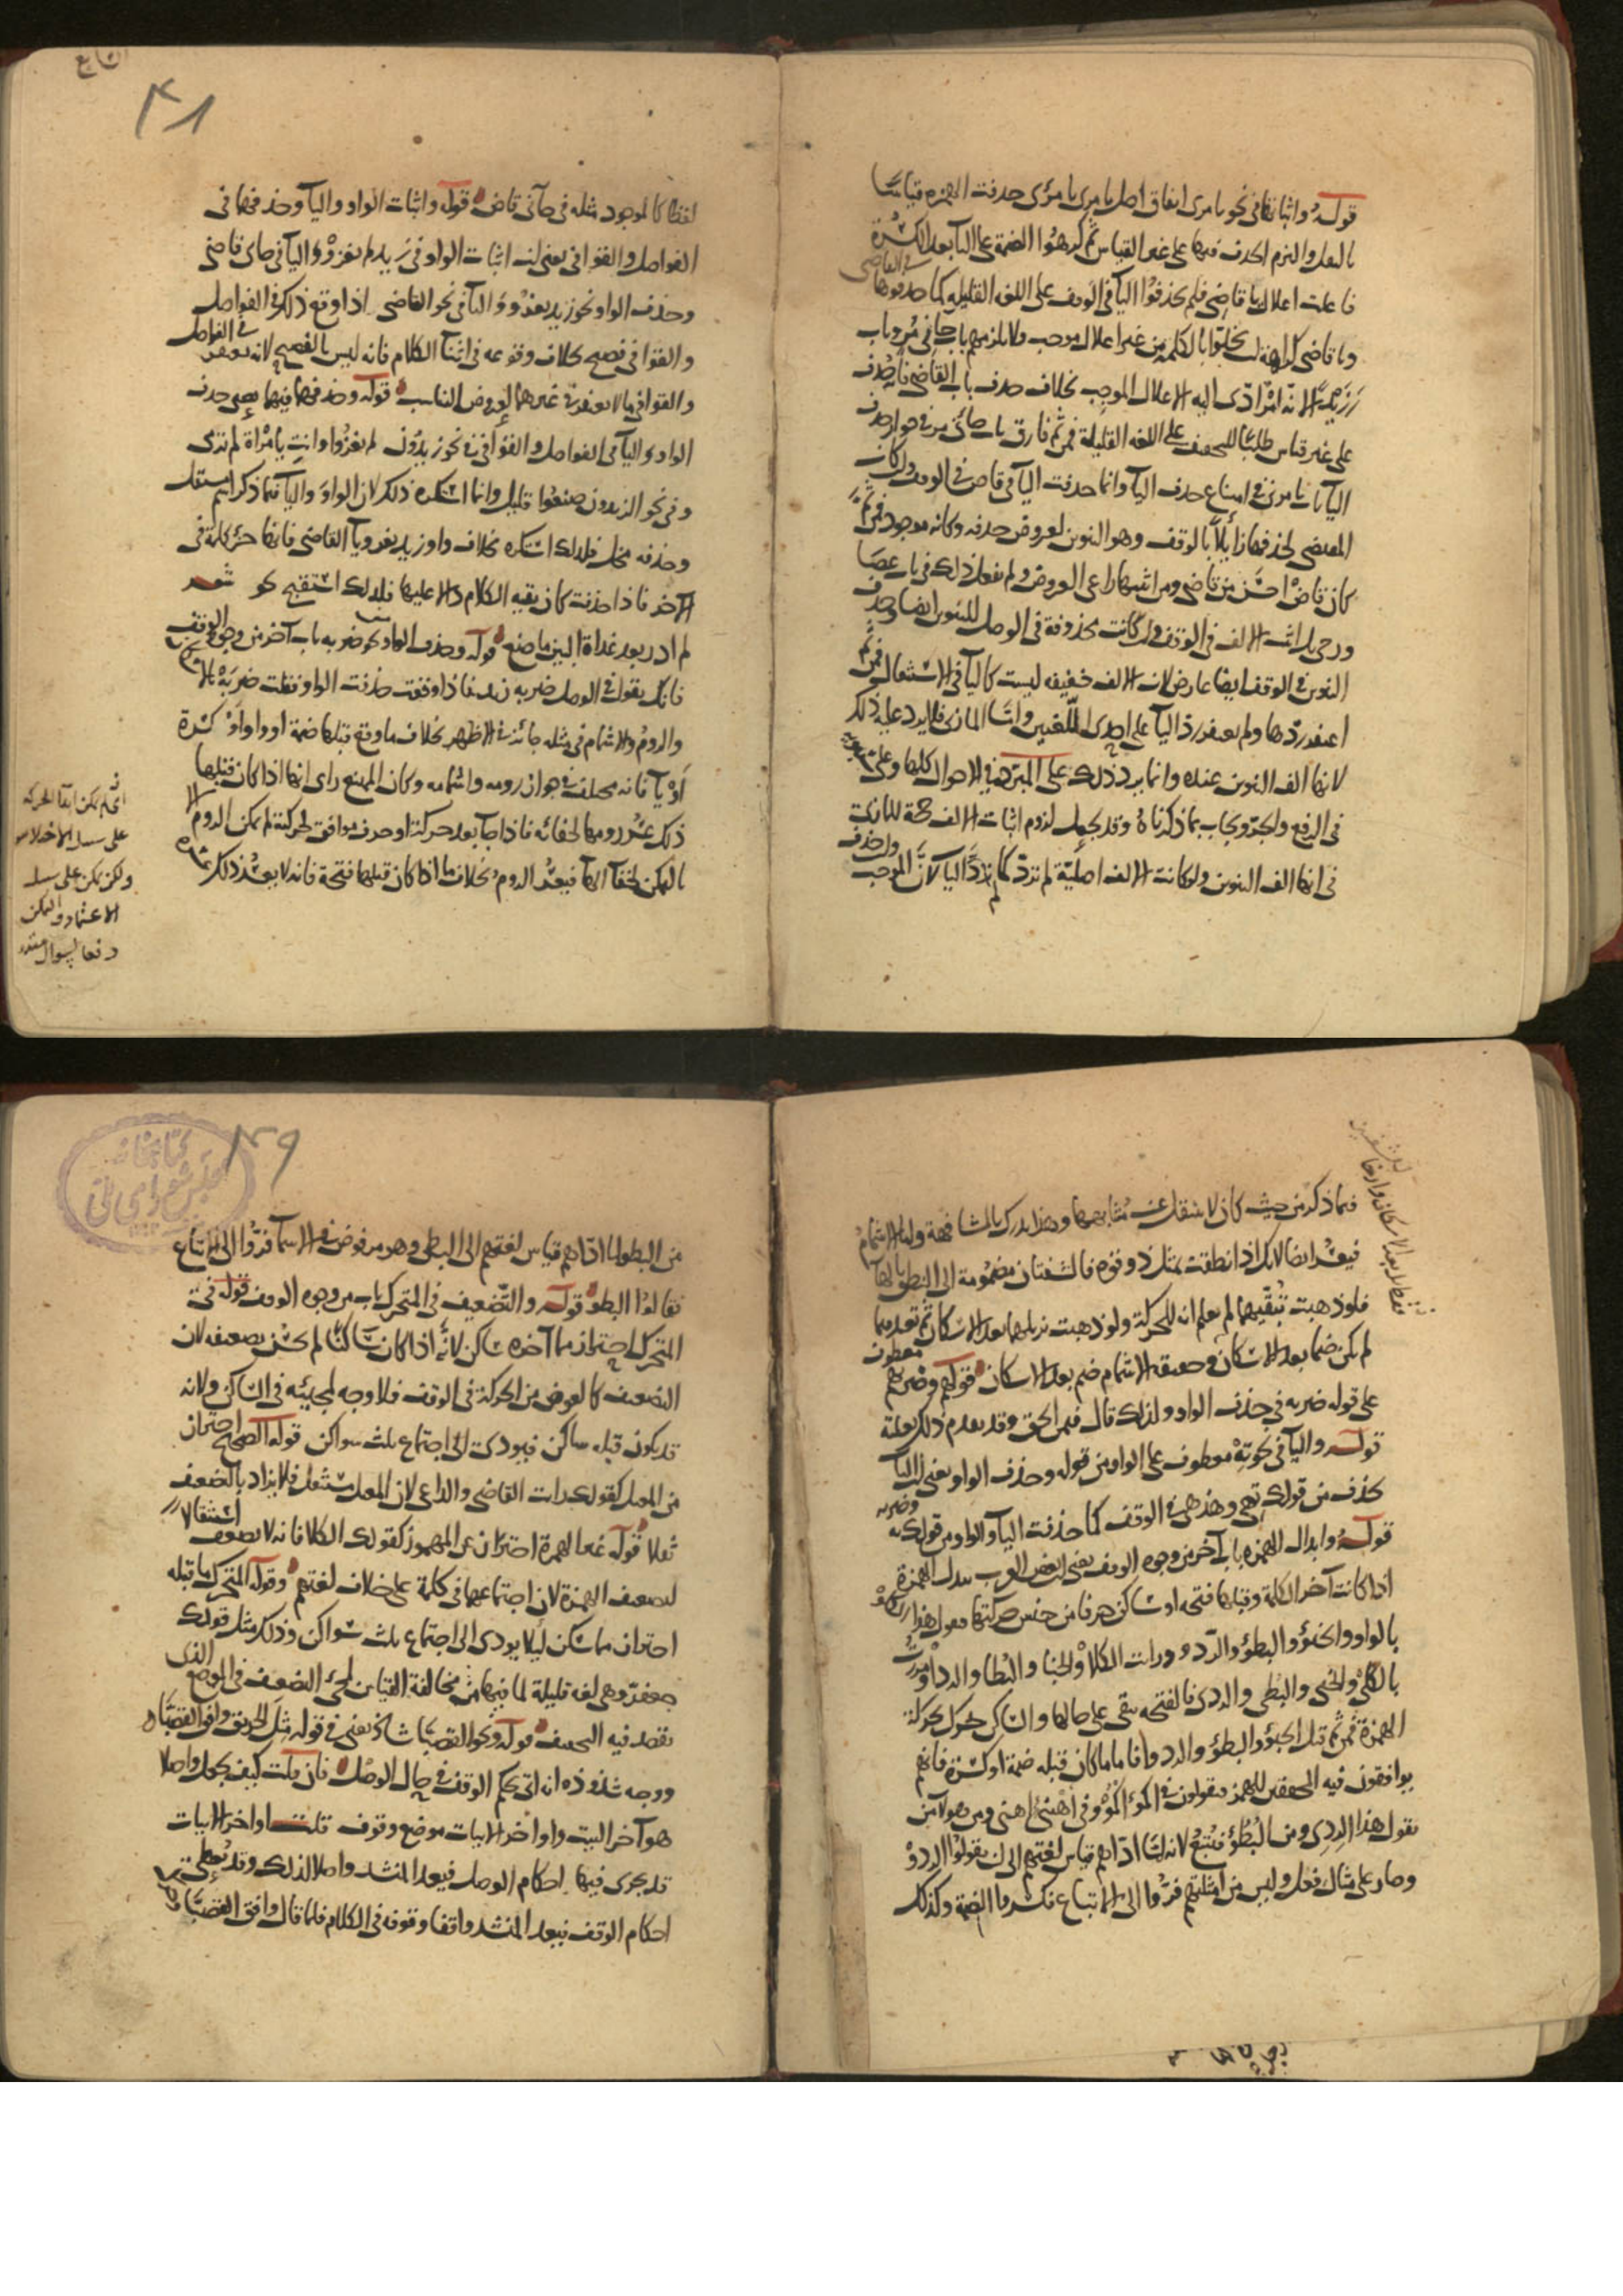 قوله واثباتها في نحو يا مري اتفاق اصل يا مري يا مرئي حذفت الهمزة قياسا
بالنقل والتزم الحذف فيها على غير القياس ثم كرهوا الضمة على اليا بعد الكسرة
فاعلت اعلال يا قاضي فلم يحذفوا اليا في الوقف على اللغة القليلة كما حذفوها
في القاضي
ويا قاضي كراهة ان يخلوا بالكلمة من غير اعلال موجب ولا يلزمهم باب جاءني مر وباب
لانه امر ادى اليه الاعلال الموجب بخلاف حذف باب القاضي فانه حذف
على غير قياس طلبا للتخفيف على اللغة القليلة فمن ثم فارق باب جائني مر في جواز حذف
اليا باب يا مري في امتناع حذف اليا وانما حذفت اليا في قاض في الوقف وان كان
المقتضي لحذفها زايلا بالوقف وهو التنوين لعروض حذفه وكانه موجود فمن ثم
كان قاض احسن من قاضي ومن اثبتها راعى العروض ولم يفعل ذلك في باب عصا
ورحى بل اثبت الالف في الوقف وان كانت محذوفة في الوصل للتنوين ايضا وحذف
التنوين في الوقف ايضا عارض لان الالف خفيفة ليست كاليا في الاستثقال فمن ثم
اغتفر ردها ولم يغتفر رد اليا على احدى اللغتين واما المازني فلا يرد عليه ذلك
لانها الف التنوين عنده وانما يرد ذلك على المبرد في الاحوال كلها وعلى
في الرفع والجر ويجاب بما ذكرناه وقد يجعل لزوم اثبات الالف حجة للمازني
في انها الف التنوين ولو كانت الالف اصلية لم ترد كما لم ترد اليا لان الموجب
وان حذف
٤٨
لفظا كالموجود مثله في جاءني قاض قوله واثبات الواو واليا وحذفهما في
الفواصل والقوافي يعني ان اثبات الواو في زيد لم يغزو واليا في جاي قاضي
وحذف الواو نحو زيد يغزو واليا في نحو القاضي اذا وقع ذلك في الفواصل
والقوافي فصيح بخلاف وقوعه في اثنا الكلام فانه ليس بالفصيح لانه
في الفواصل
والقوافي ما لا يغتفر في غيرهما لعروض التناسب قوله وحذفهما فيهما يعني حذف
الواو واليا في الفواصل والقوافي في نحو زيدون لم يغزوا وانت يا امراة لم ترى
وفي نحو الزيدون صنعوا قليل وانما استكره ذلك لان الواو واليا فيما ذكر اسم مستقل
وحذفه مخل فلذلك استكره بخلاف واو زيد يغزو ويا القاضي فانها جزء كلمة في
الاخر فاذا حذفت كان بقية الكلام دالا عليها فلذلك استقبح نحو شعر
لم ادر بعد غداة البين ما صنع قوله وحذف الواو نحو ضربه باب آخر من وجوه الوقف
فانك تقول في الوصل ضربه زيد فاذا وقفت حذفت الواو فقلت ضربه بالاسكان
والروم والاشمام في مثله جائز في الاظهر بخلاف ما وقع قبلها ضمة او واو او كسرة
او يا فانه مختلف في جواز رومه واشمامه وكان المانع راى انها اذا كان قبلها
ذلك عسر رومها لخفائه فاذا جا بعد حركة او حرف موافق لحركته لم يكن الروم الا
بالتمكن لخفا الها فيعسر الروم بخلاف ما اذا كان قبلها فتحة فانه لا يعسر ذلك
اي لم يمكن ابقا الحركة
على سبيل الاختلاس
ولكن يمكن على سبيل
الاعتماد والتمكن
دفعا لسوال مقدر
فيما ذكر من حيث كان لا يستقل عنه مشابهها وهذا يدرك بالمشافهة واما الاشمام
فيعسر ايضا لانك اذا نطقت بمثل ذو وفوه فالشفتان مضمومة الى النطق بالها
فلو ذهبت تبقيهما لم يعلم انه للحركة ولو ذهبت تزيلهما بعد الاسكان ثم تعيدهما
لم يكن ضما بعد الاسكان وحقيقة الاشمام ضم بعد الاسكان قوله وضربهم معطوف
على قوله ضربه في حذف الواو ولذلك قال فيمن الحق وقد تقدم ذلك بعلته
قوله واليا في نحو ته معطوف على الواو من قوله وحذف الواو يعني ان اليا
تحذف من قولك تهي وهذهي في الوقف كما حذفت اليا والواو من قولك به وضربه
قوله وابدال الهمزة باب آخر من وجوه الوقف يعني ان بعض العرب يبدل الهمزة
اذا كانت آخر الكلمة وقبلها فتحة او ساكن حرفا من جنس حركتها فيقول هذا الكلو
بالواو والخبؤ والبطؤ والردؤ ورايت الكلا والخبا والبطا والردا ومررت
بالكلي والخبي والبطي والردي فالفتحة تبقى على حالها والساكن يحرك بحركة
الهمزة فمن ثم قيل الخبو والبطو والردو واما ما كان قبله ضمة او كسرة فانهم
يوافقون فيه المخففين للهمز فيقولون في اكمؤ اكمو وفي اهنئ اهني ومن هولا من
يقول هذا الردي ومن البطؤ فيتبع لانه لما اداهم قياس لغتهم الى ان يقولوا الردو
وصار على مثال فعل وليس من امثلتهم فروا الى الاتباع فكسروا الضمة وكذلك
٤٩
كتابخانه
مجلس شورای ملی
من البطو لما اداهم قياس لغتهم الى البطي وهو مرفوض في الاسما فروا الى الاتباع
فقالوا البطو قوله والتضعيف في المتحرك باب من وجوه الوقف قوله في
المتحرك احتراز مما آخره ساكن لانه اذا كان ساكنا لم يحسن تضعيفه لان
التضعيف كالعوض من الحركة في الوقف فلا وجه لمجيئه في الساكن ولانه
قد يكون قبله ساكن فيودي الى اجتماع ثلث سواكن قوله الصحيح احتراز
من المعتل كقولك رايت القاضي والداعي لان المعتل مستثقل فلا يزاد بالتضعيف
ثقلا قوله غير الهمزة احتراز عن المهموز كقولك الكلا فانه لا يضعف استثقالا
لتضعيف الهمزة لان اجتماعهما في كلمة على خلاف لغتهم وقوله المتحرك ما قبله
احتراز مما سكن ليلا يودي الى اجتماع ثلث سواكن وذلك مثل قولك
جعفر وهي لغة قليلة لما فيها من مخالفة القياس لمجي التضعيف في الموضع الذي
يقصد فيه التخفيف قوله ونحو القصبا شاذ يعني في قوله مثل الحريق وافق القصبا
ووجه شذوذه انه اتى بحكم الوقف في حال الوصل فان قلت كيف يجعل واصلا
هو آخر البيت واواخر الابيات موضع وقوف قلت اواخر الابيات
قد يجرى فيها احكام الوصل فيعد المنشد واصلا لذلك وقد يعطى
احكام الوقف فيعد المنشد واقفا وقوفه في الكلام فلما قال وافق القصبا